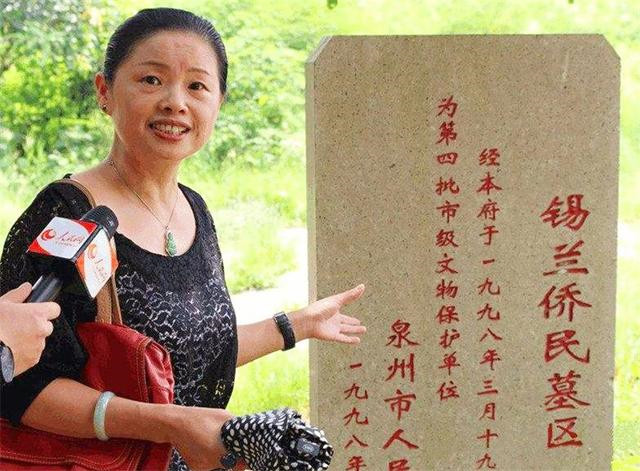 锡兰侨民墓区
经本府于一九九八年三月十九
为第四批市级文物保护单位
泉州市人民
一九九八年
人民网
人民网